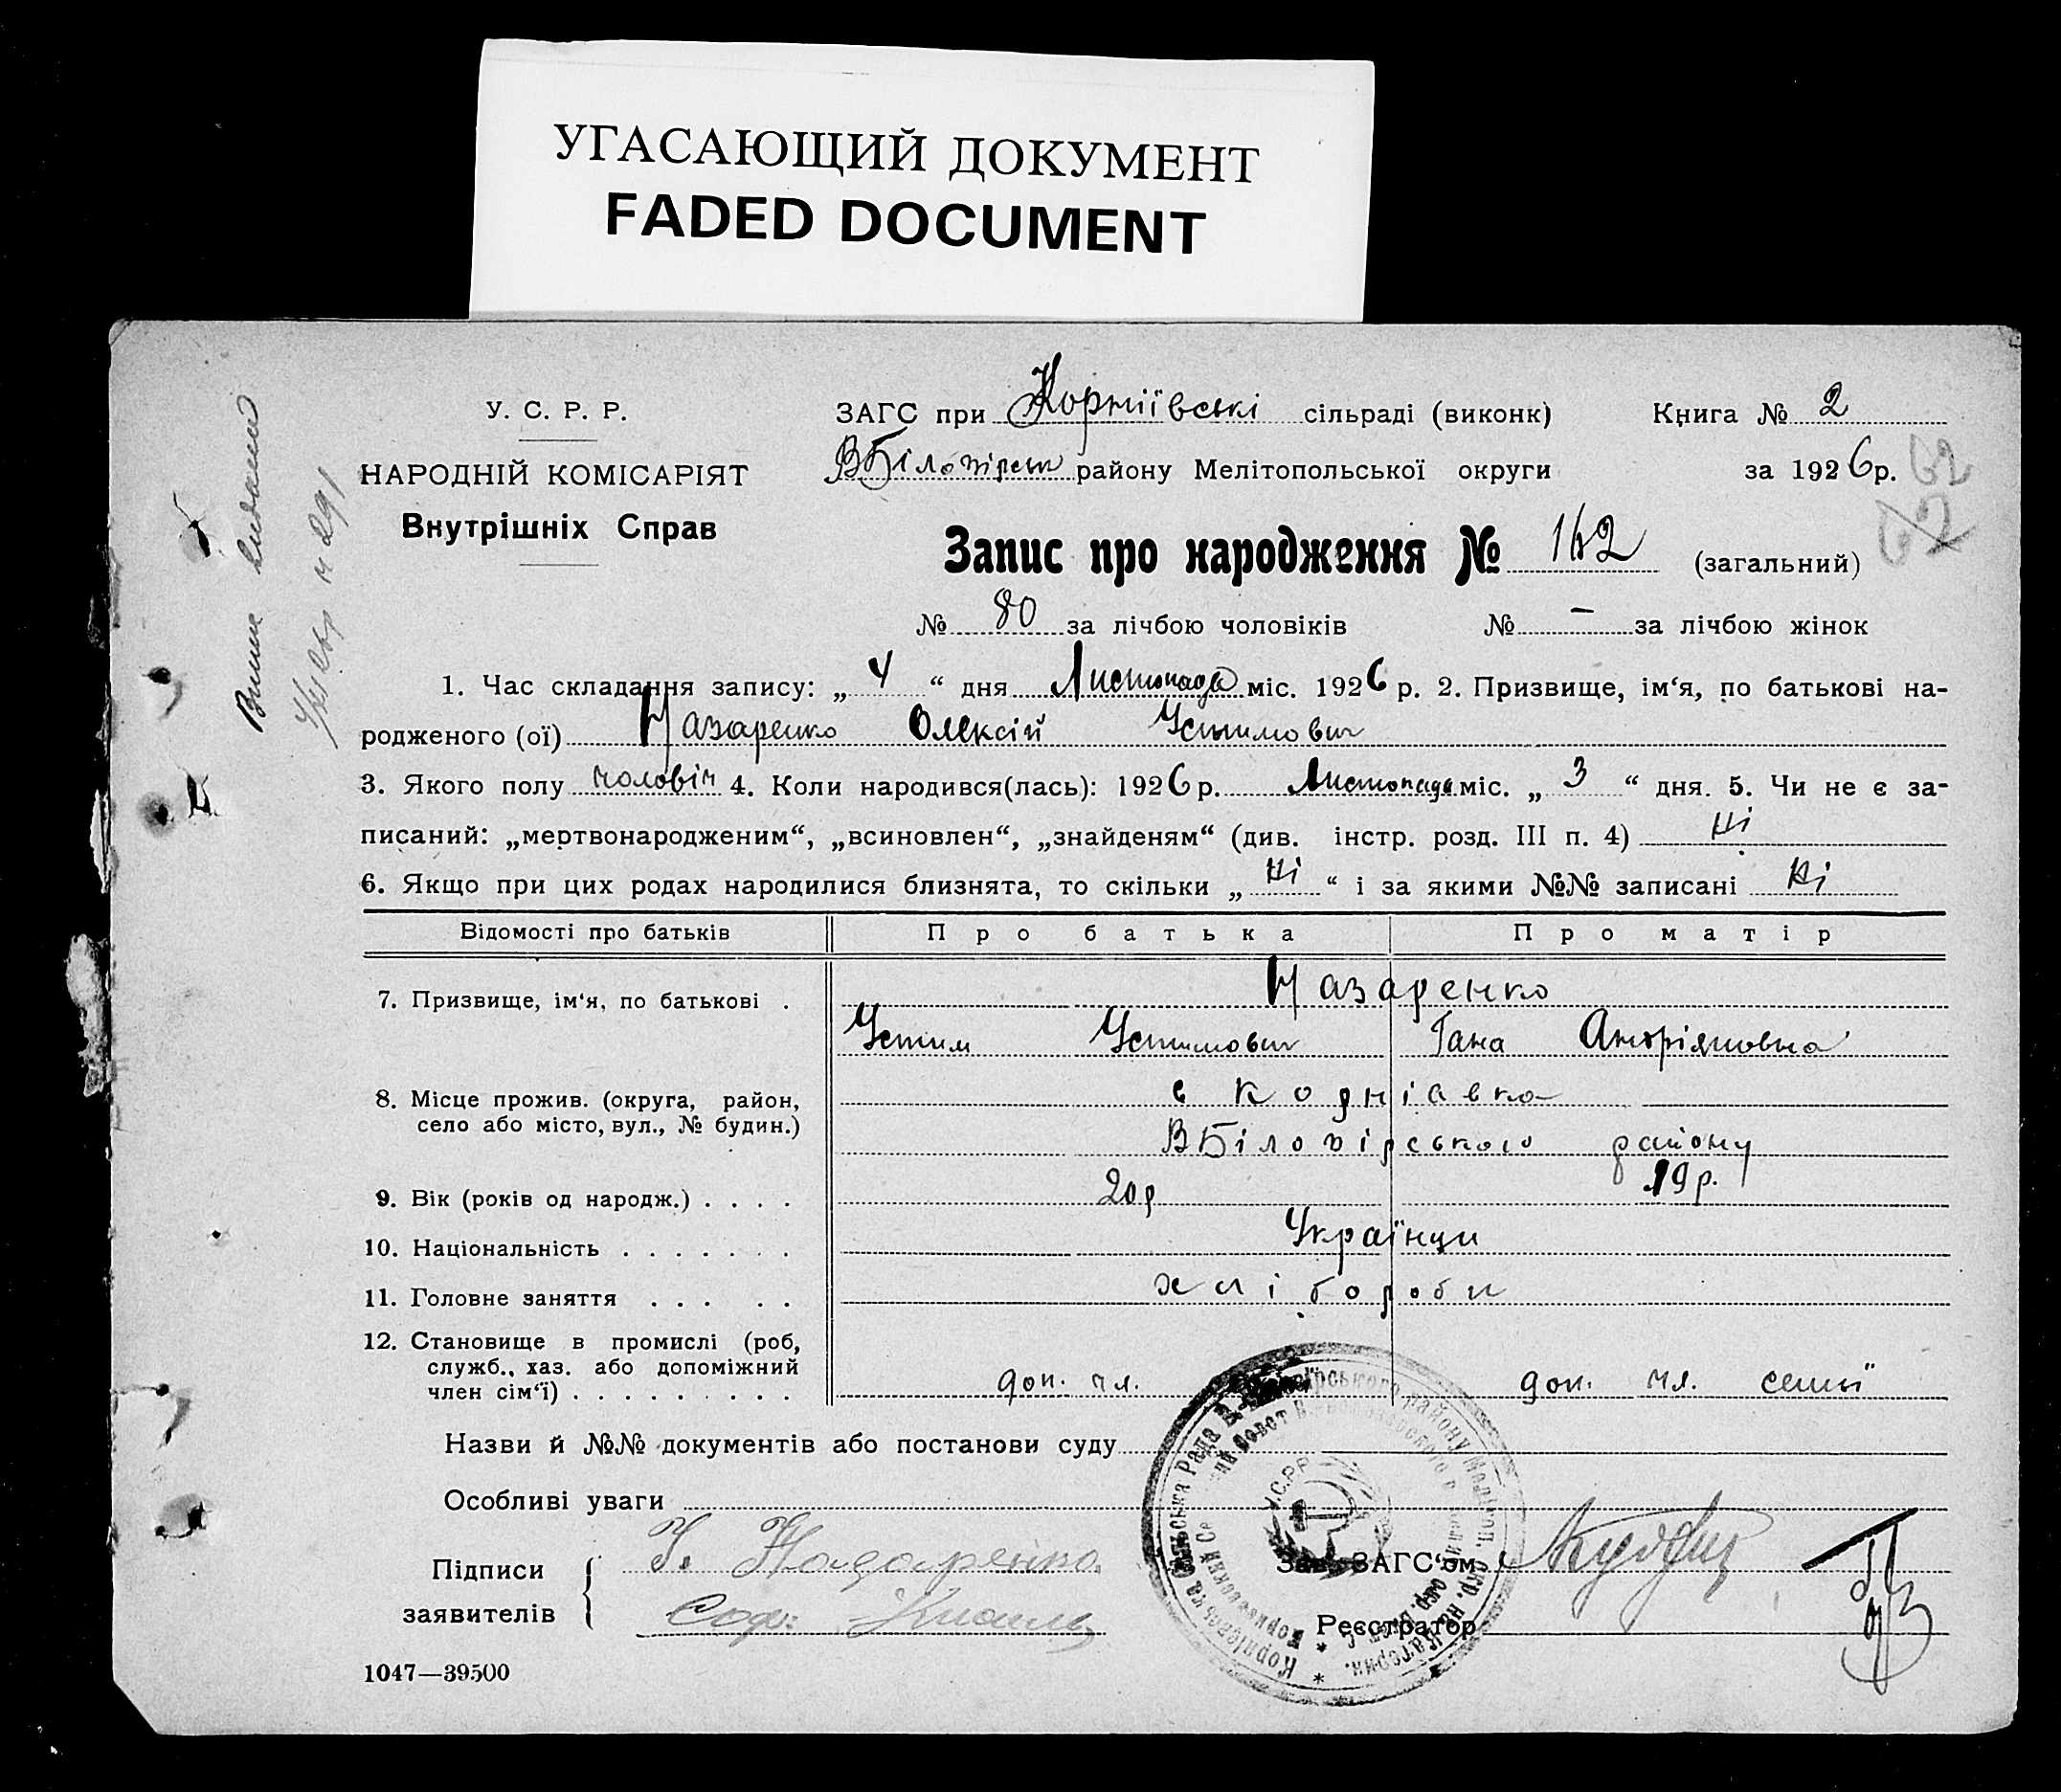 УГАСАЮЩИЙ ДОКУМЕНТ
FADED DOCUMENT
У. С. Р. Р.
НАРОДНІЙ КОМІСАРІЯТ
Внутрішніх Справ
ЗАГС при Корніївські сільраді (виконк) Книга № 2
ВБілозірськ району Мелітопольської округи за 1926р.
62
Запис про народження № 142 (загальний)
№ 80 за лічбою чоловіків № — за лічбою жінок
1. Час складання запису: „ 4 “ дня Листопада міс. 1926 р. 2. Призвище, ім‘я, по батькові на-
родженого (ої) Назаренко Олексій Устимович
3. Якого полу чоловіч 4. Коли народився(лась): 1926р. Листопада міс. „ 3 “ дня. 5. Чи не є за-
писаний: „мертвонародженим“, „всиновлен“, „знайденям“ (див. інстр. розд. III п. 4) ні
6. Якщо при цих родах народилися близнята, то скільки „ ні “ і за якими №№ записані ні
Відомості про батьків Про батька Про матір
7. Призвище, ім‘я, по батькові . Назаренко
Устим Устимович Гана Андріяновна
8. Місце прожив. (округа, район,
село або місто, вул., № будин.)
с Корніавка
ВБілозірського району
9. Вік (років од народж.) . . . . 20р 19р.
10. Національність . . . . . . . Українци
11. Головне заняття . . . . . хлібороби
12. Становище в промислі (роб,
служб., хаз. або допоміжний
член сім‘ї) . . . . . . . . . доп. чл. доп. чл. семьї
Назви й №№ документів або постанови суду
Особливі уваги
У.С.Р.Р.
Підписи
заявителів
У. Назаренко
Зав. ЗАГС‘ом
Реєстратор
1047—39500